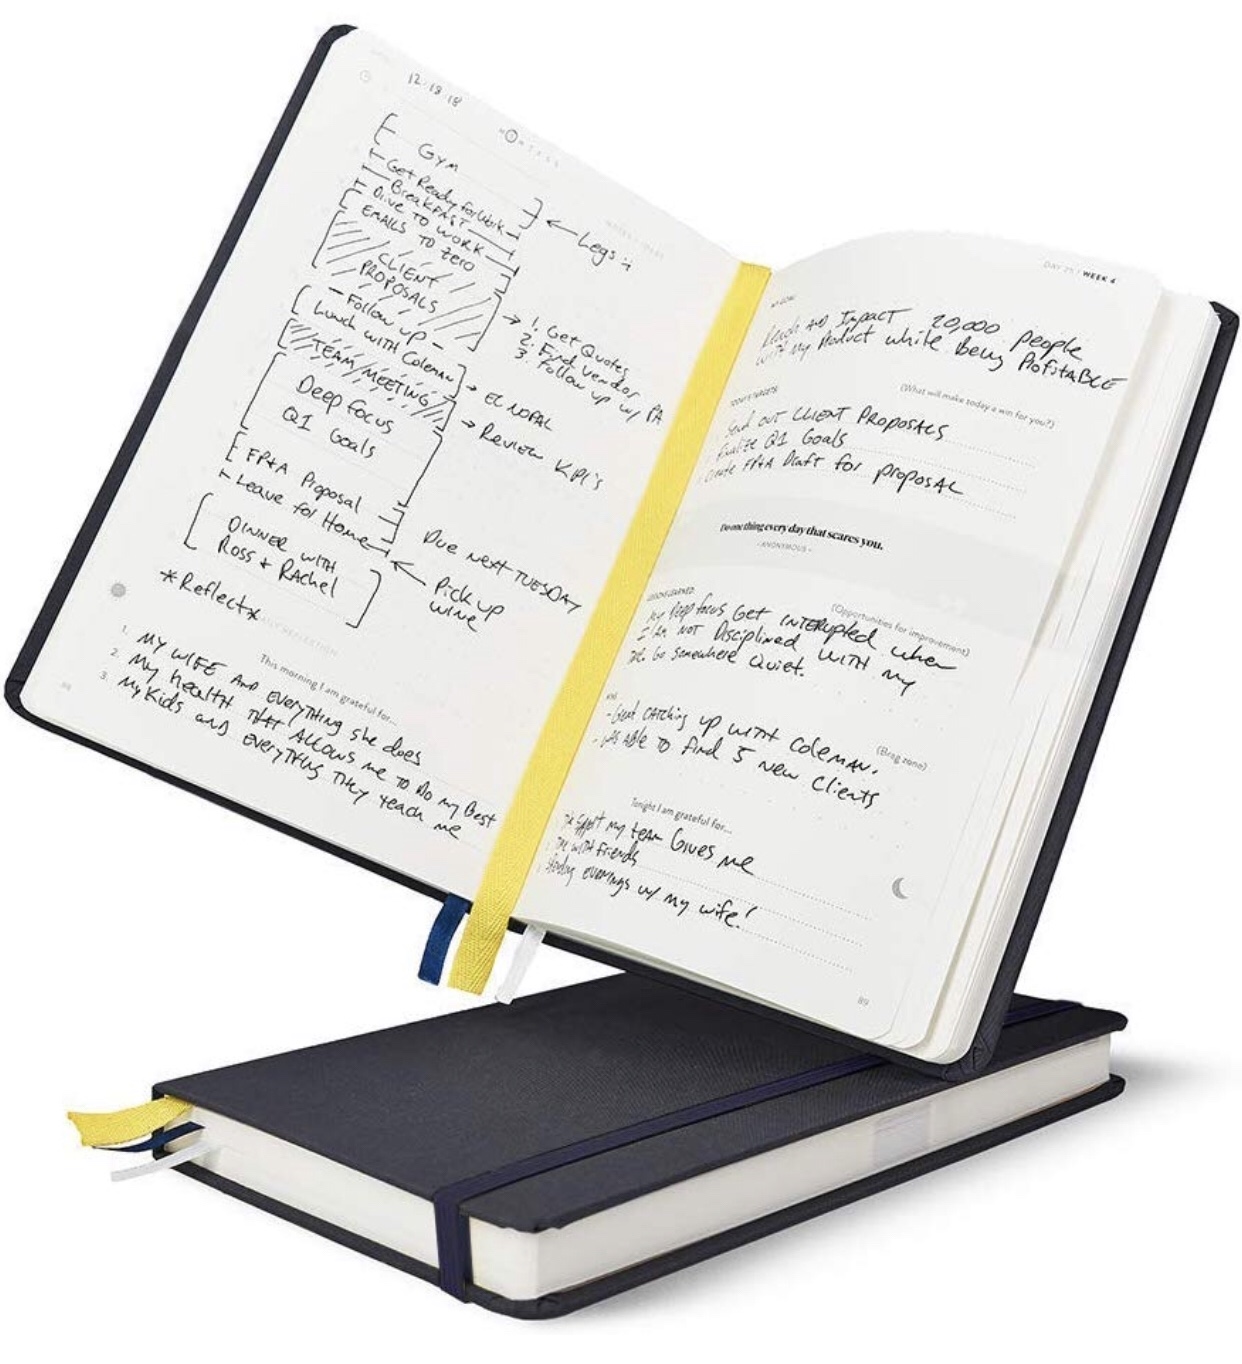 12.18.18
Gym
Get Ready for Work
Breakfast
Drive to work
Emails to zero
Client
Proposals
- Follow up -
Lunch with Coleman
Team Meeting
Deep focus
Q1 Goals
FP&A Proposal
Leave for Home
Dinner with
Ross + Rachel
*Reflect*
← Legs
→ 1. Get Quotes
2. Find vendor
3. Follow up w/ PA
→ El Nopal
→ Review KPI's
Due next Tuesday
← Pick up
wine
This morning I am grateful for...
1. My wife and everything she does
2. My health that allows me to do my best
3. My Kids and everything they teach me
88
DAY 25 / WEEK 4
MY GOAL
Reach and Impact 20,000 people
with my product while being profitable
TODAY'S TARGETS
(What will make today a win for you?)
Send out client proposals
Finalize Q1 Goals
Create FP&A Draft for proposal
Do one thing every day that scares you.
- ANONYMOUS -
LESSONS LEARNED
(Opportunities for improvement)
My Deep focus Get interupted when
I am not Disciplined with my
Go somewhere Quiet.
(Brag zone)
- Great catching up with Coleman.
- was able to find 5 new clients
Tonight I am grateful for...
my team Gives me
with friends
evenings w/ my wife!
89